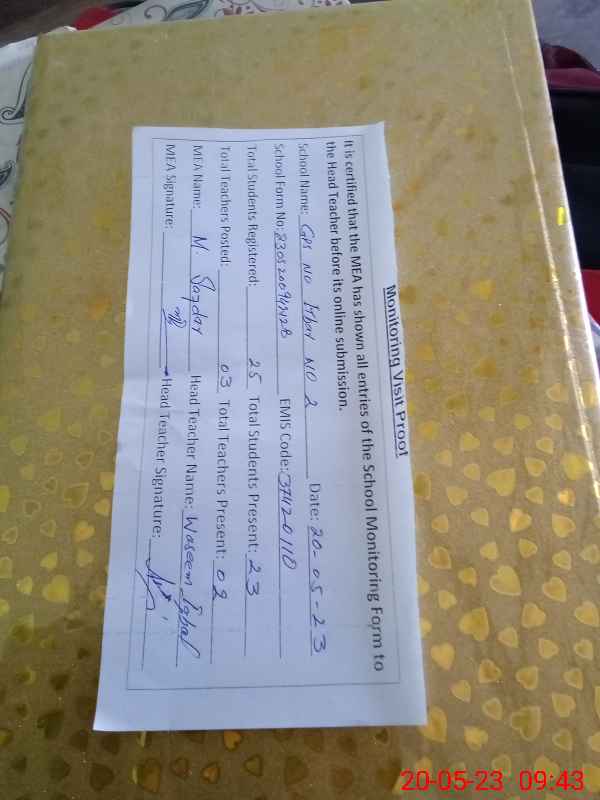 Monitoring Visit Proof
It is certified that the MEA has shown all entries of the School Monitoring Form to
the Head Teacher before its online submission.
School Name: GPS NO NO 2 Date: 20-05-23
School Form No: EMIS Code: 37420110
Total Students Registered: 25 Total Students Present: 23
Total Teachers Posted: 03 Total Teachers Present: 02
MEA Name: M. Head Teacher Name: Waseem Iqbal
MEA Signature: Head Teacher Signature:
20-05-23 09:43